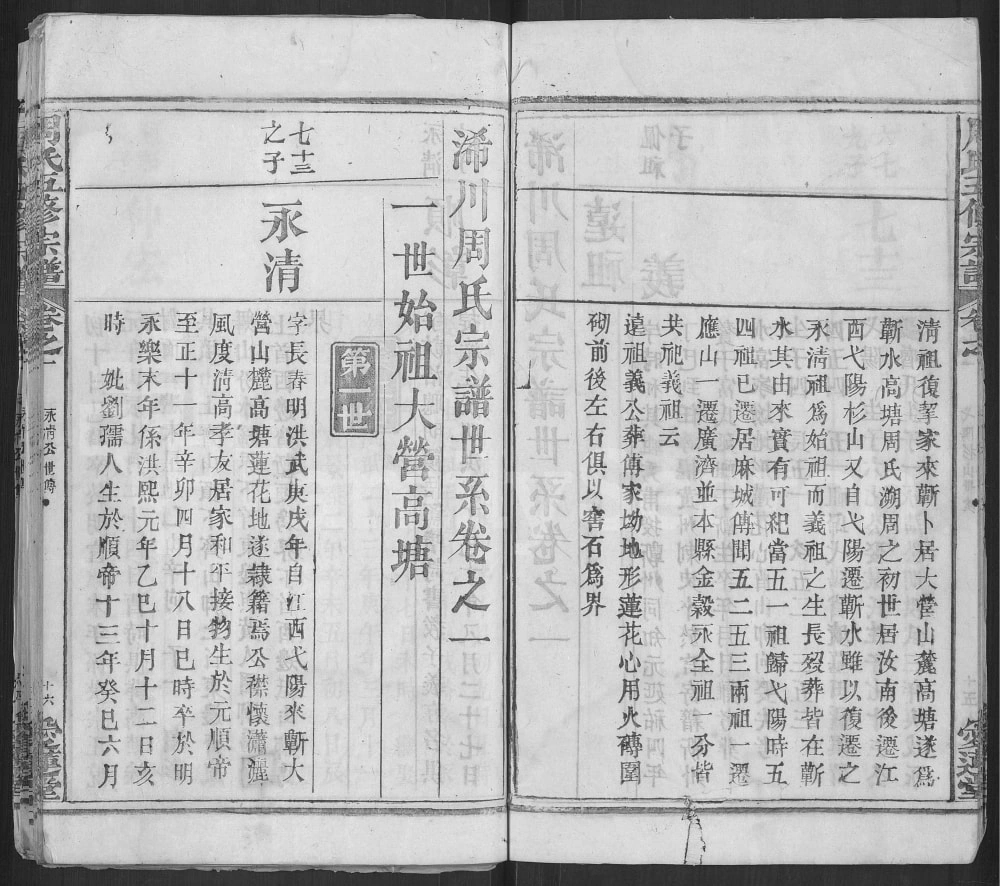 清祖復挈家來蘄卜居大營山麓高塘遂爲
蘄水高塘周氏溯周之初世居汝南後遷江
西弋陽杉山又自弋陽遷蘄水雖以復遷之
永清祖爲始祖而義祖之生長歿葬皆在蘄
水其由來實有可紀當五一祖歸弋陽時五
四祖已遷居麻城傳聞五二五三兩祖一遷
應山一遷廣濟並本縣金穀永全祖一分皆
共祀義祖云
遠祖義公葬傅家坳地形蓮花心用火磚圍
砌前後左右俱以窖石爲界
浠川周氏宗譜世系卷之一
一世始祖大營高塘
第一世
七十三
之子
永清
字長春明洪武庚戌年自江西弋陽來蘄大
營山麓高塘蓮花地遂隸籍焉公襟懷瀟灑
風度清高孝友居家和平接物生於元順帝
至正十一年辛卯四月十八日巳時卒於明
永樂末年係洪熙元年乙巳十月十二日亥
時 妣劉孺人生於順帝十三年癸巳六月
周氏五修宗譜
卷之一
永清公世傳
十六
愛蓮堂